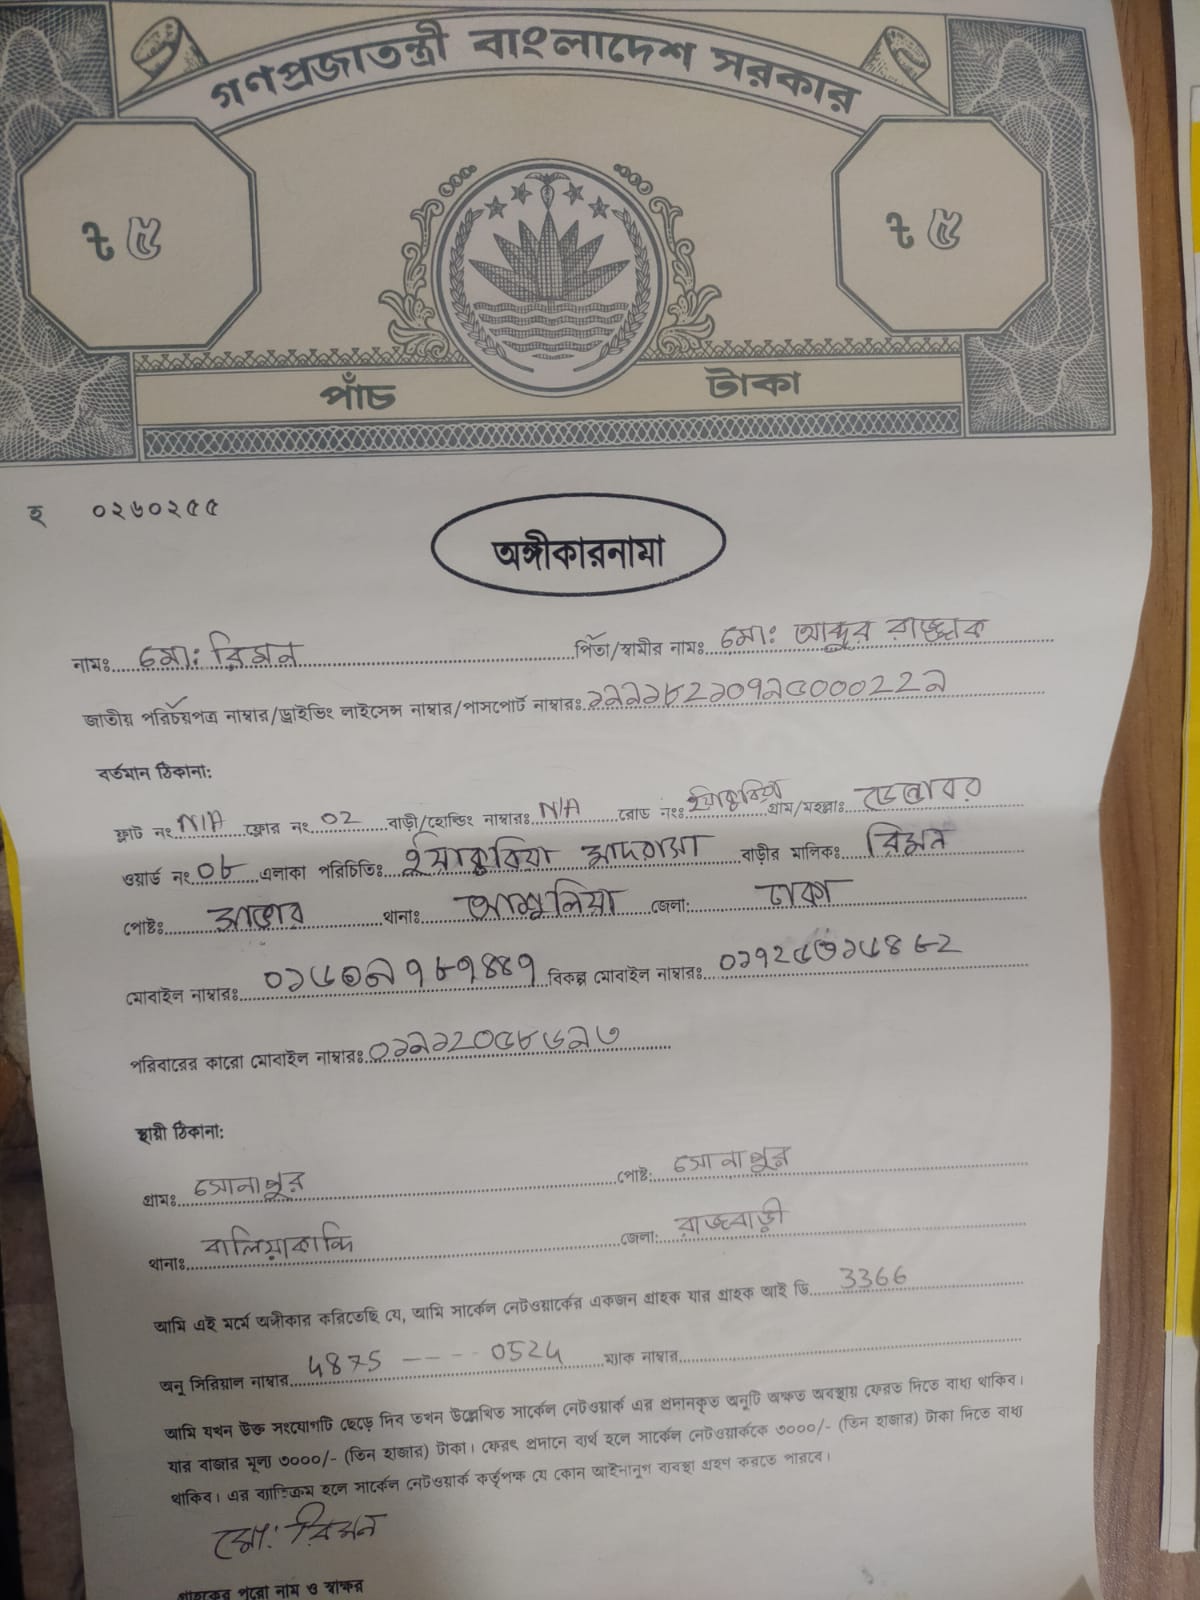 গণপ্রজাতন্ত্রী বাংলাদেশ সরকার
৳ ৫ ৳ ৫
পাঁচ টাকা
হ ০২৬০২৫৫
অঙ্গীকারনামা
নামঃ মো: রিমন পিতা/স্বামীর নামঃ মো: আব্দুর রাজ্জাক
জাতীয় পরিচয়পত্র নাম্বার/ড্রাইভিং লাইসেন্স নাম্বার/পাসপোর্ট নাম্বারঃ
বর্তমান ঠিকানা:
ফ্লাট নং N/A ফ্লোর নং 02 বাড়ী/হোল্ডিং নাম্বারঃ N/A রোড নংঃ গ্রাম/মহল্লাঃ
ওয়ার্ড নং ০৮ এলাকা পরিচিতিঃ মাদরাসা বাড়ীর মালিকঃ রিমন
পোষ্টঃ সাভার থানাঃ আশুলিয়া জেলা: ঢাকা
মোবাইল নাম্বারঃ বিকল্প মোবাইল নাম্বারঃ
পরিবারের কারো মোবাইল নাম্বারঃ
স্থায়ী ঠিকানা:
গ্রামঃ সোনাপুর পোষ্ট: সোনাপুর
থানাঃ বালিয়াকান্দি জেলা: রাজবাড়ী
আমি এই মর্মে অঙ্গীকার করিতেছি যে, আমি সার্কেল নেটওয়ার্কের একজন গ্রাহক যার গ্রাহক আই ডি 3366
অনু সিরিয়াল নাম্বার 4875 ---- 0524 ম্যাক নাম্বার
আমি যখন উক্ত সংযোগটি ছেড়ে দিব তখন উল্লেখিত সার্কেল নেটওয়ার্ক এর প্রদানকৃত অনুটি অক্ষত অবস্থায় ফেরত দিতে বাধ্য থাকিব।
যার বাজার মূল্য ৩০০০/- (তিন হাজার) টাকা। ফেরৎ প্রদানে ব্যর্থ হলে সার্কেল নেটওয়ার্ককে ৩০০০/- (তিন হাজার) টাকা দিতে বাধ্য
থাকিব। এর ব্যাতিক্রম হলে সার্কেল নেটওয়ার্ক কর্তৃপক্ষ যে কোন আইনানুগ ব্যবস্থা গ্রহণ করতে পারবে।
মো: রিমন
গ্রাহকের পুরো নাম ও স্বাক্ষর